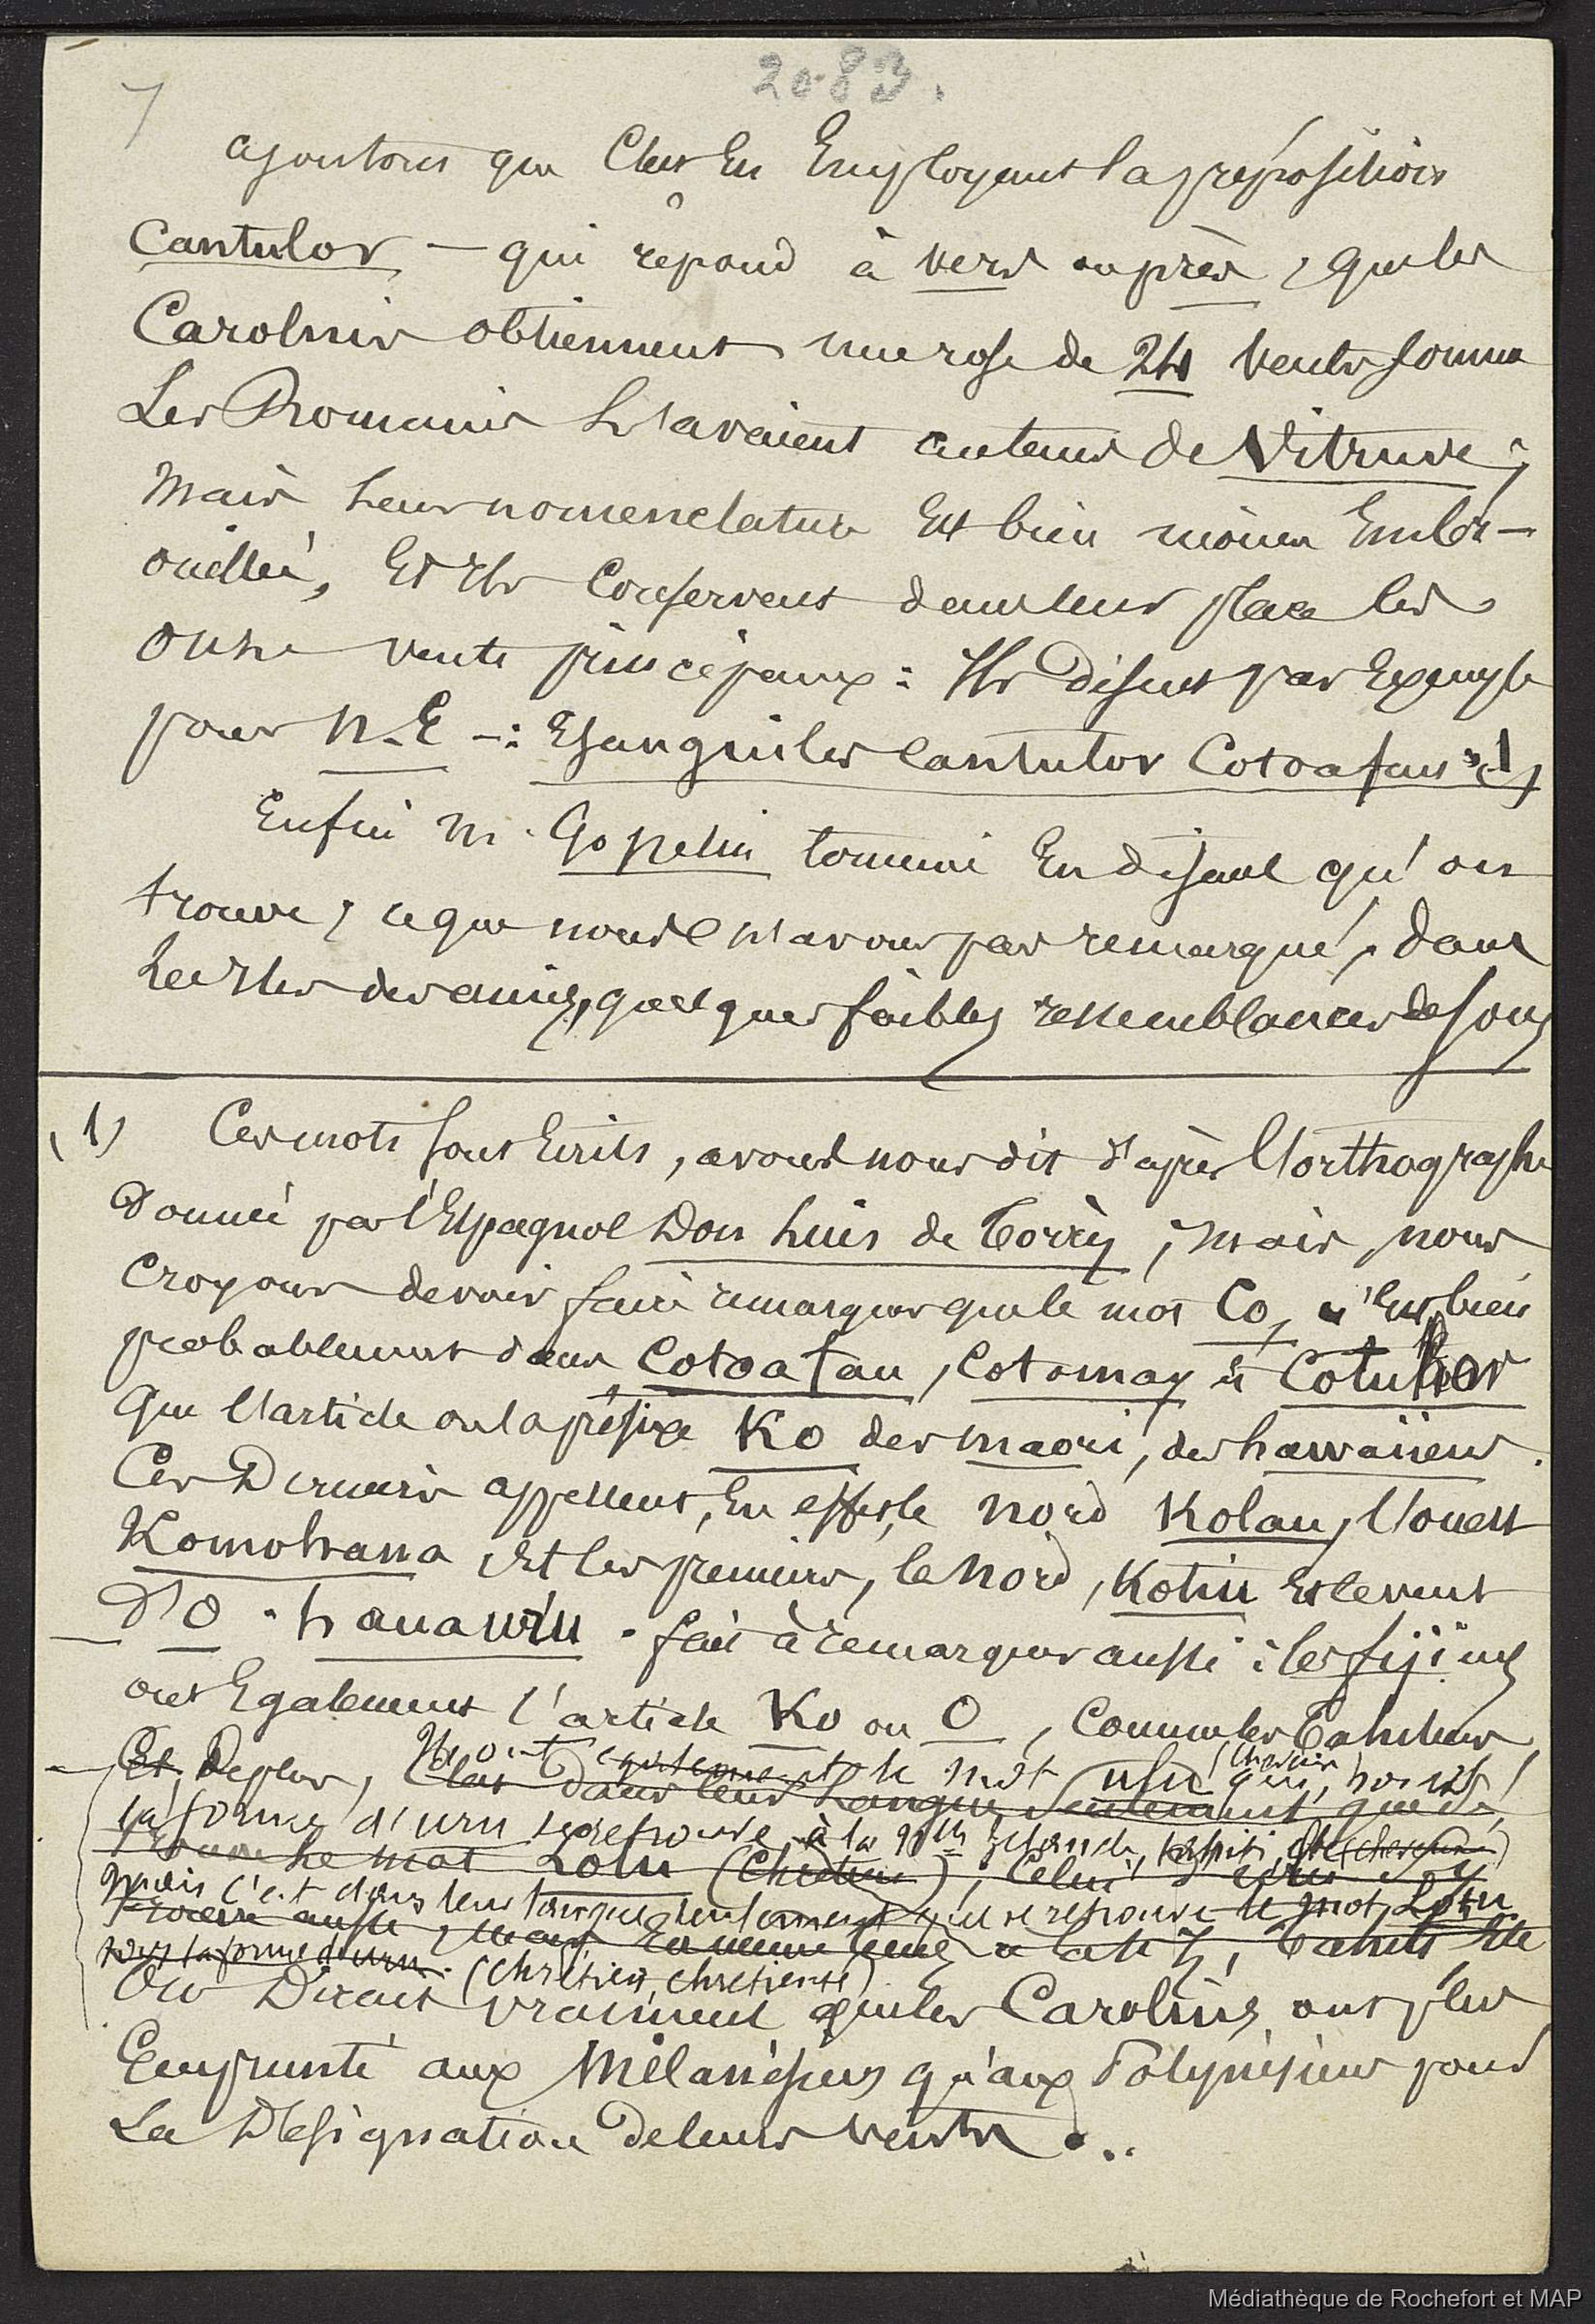 2083.
7
ajoutons que c'est en employant la préposition
Cantulor — qui répond à vers ou près, que les
Carolins obtiennent une rose de 24 vents comme
Les Romains l'avaient au tems de Vitruve;
Mais leur nomenclature est bien moins emb-
ouillée, et ils conservent dans leur place les
onze vents principaux: Ils disent par Exemple
pour N.E -: Efanguiler Cantulor Cotoafan (1)
Enfin M. Gosselin termine en disant qu'on
trouve, ce que nous n'avons pas remarqué, dans
les Iles des amis, quelques faibles ressemblances de sons
(1) Ces mots sont écrits, avons nous dit d'après l'orthographe
Donnée par l'Espagnol Don Luis de Torrès; mais nous
croyons devoir faire remarquer que le mot Co, n'est bien
probablement dans Cotoatan, Cotomay et Cotulor
que l'article ou la préfixe Ko des maori, des hawaiiens.
Ces Derniers appellent, en effet, le nord Kolau, l'ouest
Komohana et les premiers, le Nord, Kotiu et le vent
D'O. hauauru. fait à remarquer aussi: les fijiens
ont Egalement l'article Ko ou O, comme les Tahitiens
Et Deplus, Ils ont également le mot ulu (cheveux) qui, sous
C'est dans leur Langue seulement que se
la forme d'uru se retrouve à la Nlle Zélande, Tahiti, etc (cheveux)
retrouve le mot Lotu (Chrétien), celui d'uru s'y
mais c'est dans leur langue seulement qu'on retrouve le mot Lotu
trouve aussi, mais en même tems à la N. Z., Tahiti etc
sous la forme d'uru. (chrétien, chrétienté)
On Dirait vraiment que les Carolins ont plus
Emprunté aux Mélanésiens qu'aux Polynésiens pour
La Désignation de leurs vents...
Médiathèque de Rochefort et MAP